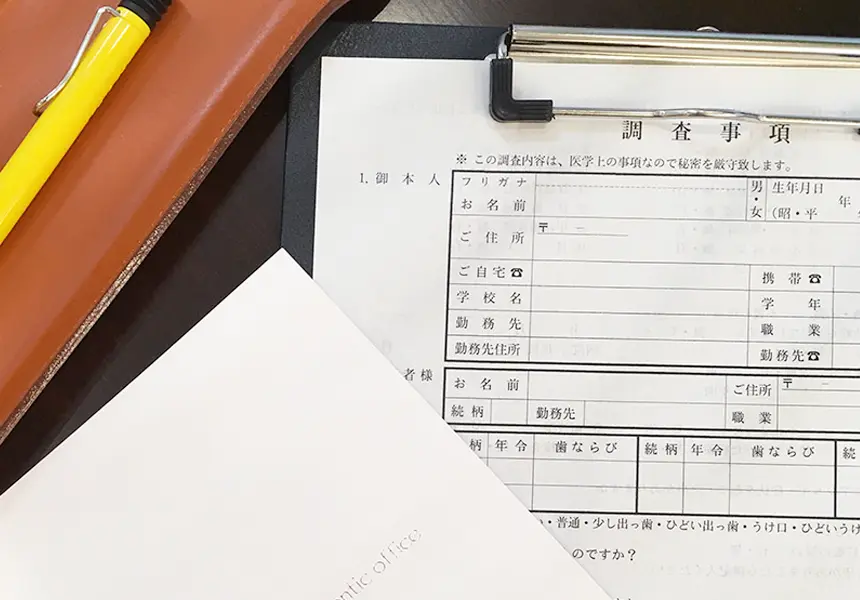 調査事項
※ この調査内容は、医学上の事項なので秘密を厳守致します。
1. 御本人
フリガナ
お名前
男・女
生年月日
(昭・平
年
ご住所
〒 －
ご自宅☎
携帯☎
学校名
学年
勤務先
職業
勤務先住所
勤務先☎
者様
お名前
ご住所
〒 －
続柄
勤務先
職業
柄 年令 歯ならび 続柄 年令 歯ならび 続
・普通・少し出っ歯・ひどい出っ歯・うけ口・ひどいうけ
のですか？
ntic office